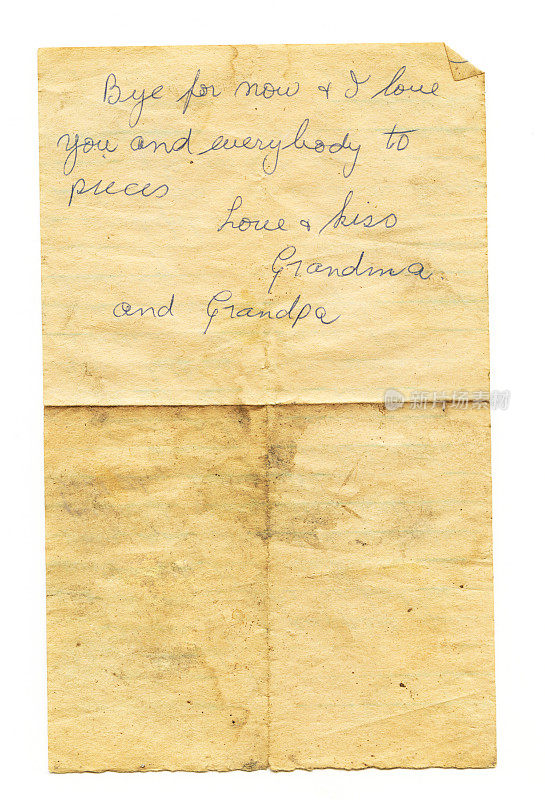 Bye for now & I love
you and everybody to
pieces
Love & kiss
Grandma.
and Grandpa
新片场素材